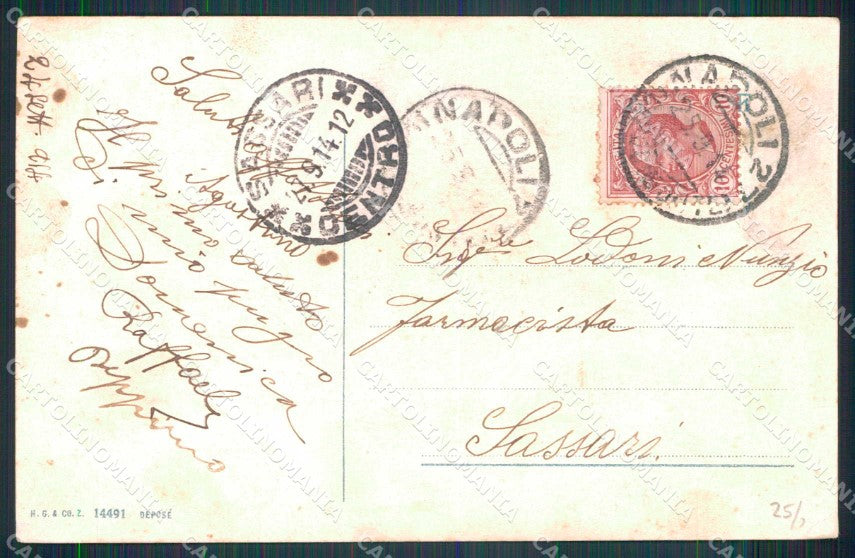 Saluti
Agostino
Il primo saluto
di mio pugno
Domenica
Raffaele
Peppino
SASSARI
CENTRO
9.14.12
NAPOLI
NAPOLI 2
10
Sigre Lodoni Nunzio
Farmacista
Sassari.
H. G. & CO. Z. 14491 DÉPOSÉ
25/,
CARTOLINOMANIA